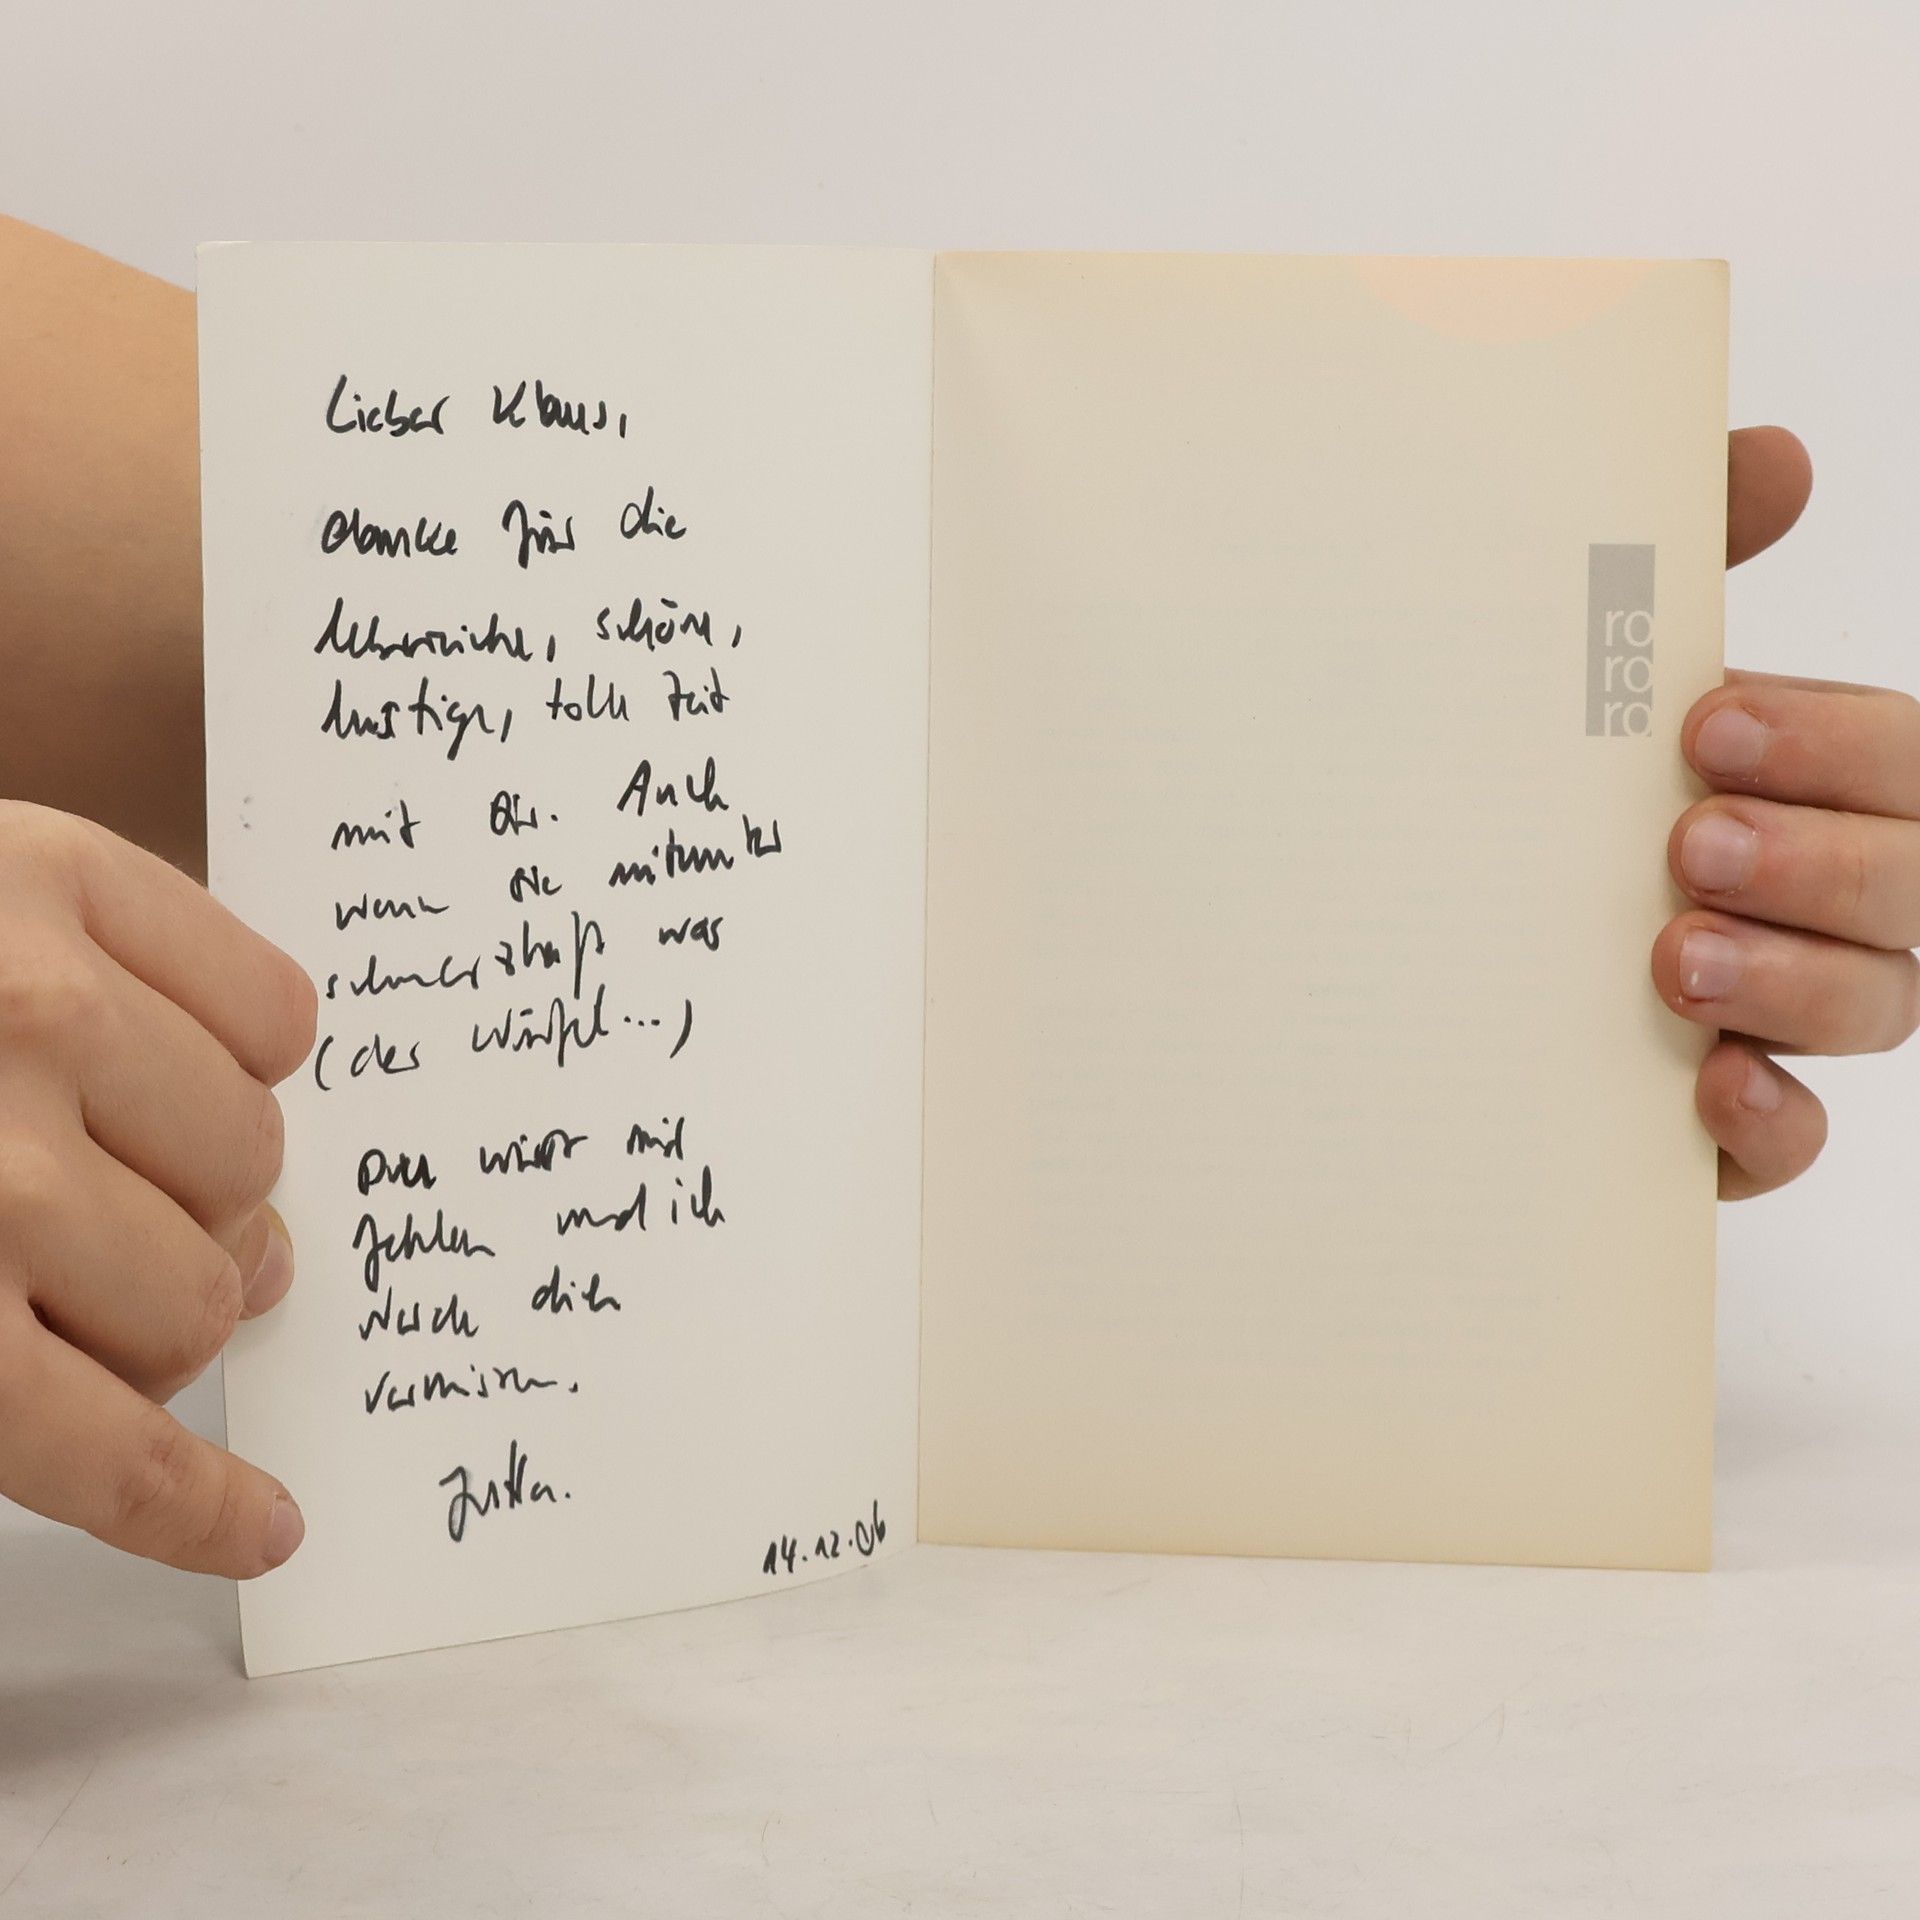 Lieber Klaus,
danke für die
lehrreiche, schöne,
lustige, tolle Zeit
mit Dir. Auch
wenn sie mitunter
schmerzhaft was
(der Würfel...)
Du wirst mir
fehlen und ich
werde dich
vermissen.
Jutta.
14.12.06
ro
ro
ro